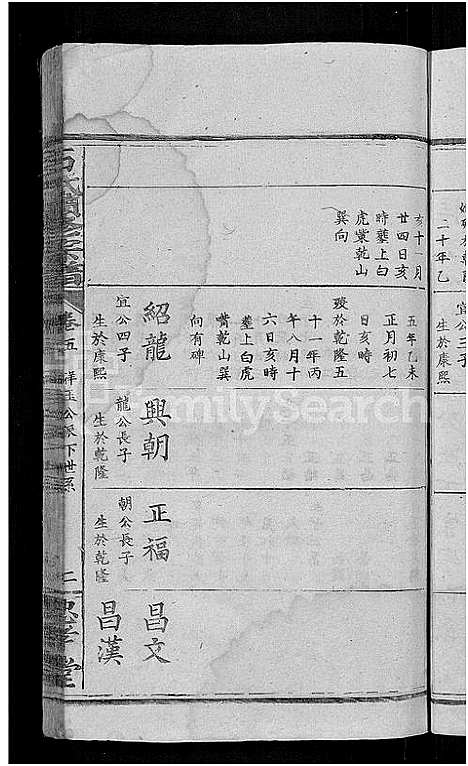 亥十一月
廿四日亥
時塟上白
虎棠乾山
巽向
五年乙未
正月初七
日亥時
歿於乾隆五
十一年丙
午八月十
六日亥時
塟上白虎
嘴乾山巽
向有碑
紹龍
宜公四子
生於康熙
興朝
龍公長子
生於乾隆
正福
朝公長子
生於乾隆
昌文
昌漢
卷五
祥玉公派下世系
二
二十年乙
宜公三子
生於康熙
FamilySearch